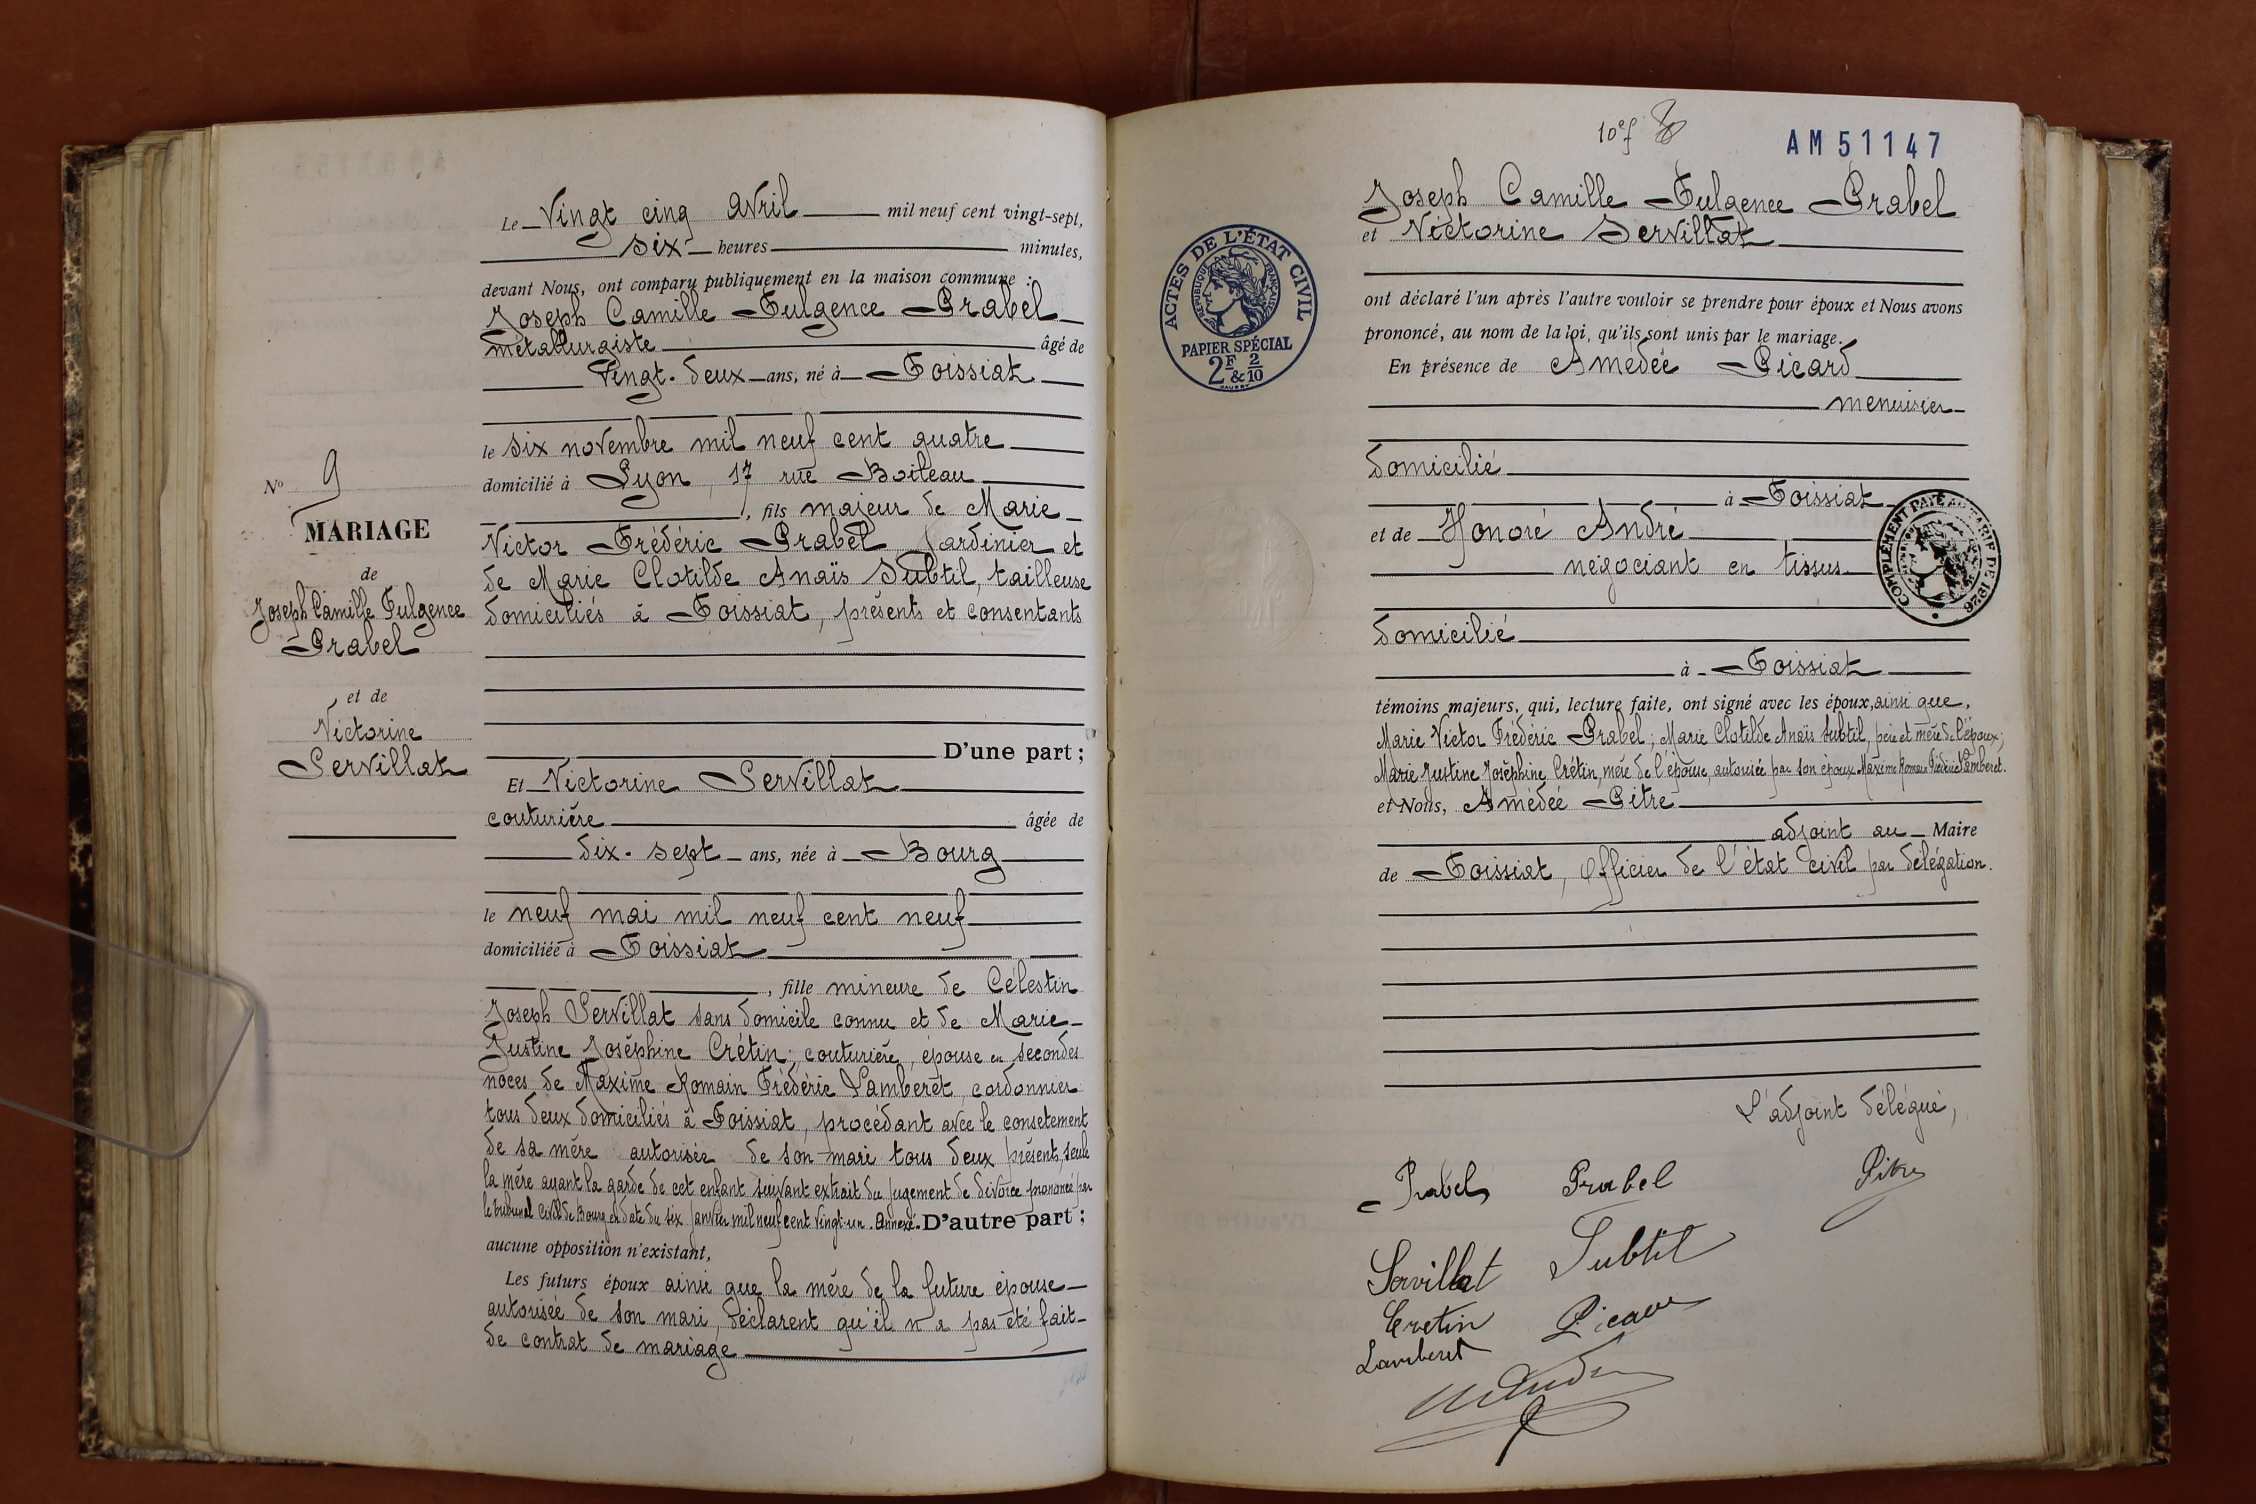 Le Vingt cinq Avril mil neuf cent vingt-sept,
six heures minutes,
devant Nous, ont comparu publiquement en la maison commune :
Joseph Camille Fulgence Prabel
métallurgiste âgé de
Vingt-deux ans, né à Foissiat
le six novembre mil neuf cent quatre
domicilié à Lyon, 17 rue Boileau
, fils majeur de Marie
Victor Frédéric Prabel, jardinier et
de Marie Clotilde Anaïs Subtil, tailleuse
domiciliés à Foissiat, présents et consentants
D'une part ;
Nº 9
MARIAGE
de
Joseph Camille Fulgence
Prabel
et de
Victorine
Servillat
Et Victorine Servillat
couturière âgée de
dix-sept ans, née à Bourg
le neuf mai mil neuf cent neuf
domiciliée à Foissiat
, fille mineure de Célestin
Joseph Servillat sans domicile connu et de Marie
Justine Joséphine Crétin, couturière, épouse en secondes
noces de Maxime Romain Frédéric Lamberet, cordonnier
tous deux domiciliés à Foissiat, procédant avec le consetement
de sa mère autorisée de son mari tous deux présents, seule
la mère ayant la garde de cet enfant suivant extrait du jugement de divorce prononcé par
le tribunal civil de Bourg en date du six janvier mil neuf cent vingt-un. Annexé. D'autre part ;
aucune opposition n'existant,
Les futurs époux ainsi que la mère de la future épouse
autorisée de son mari, déclarent qu'il n'a pas été fait
de contrat de mariage
10 f
AM 51147
Joseph Camille Fulgence Prabel
et Victorine Servillat
ACTES DE L'ÉTAT CIVIL
RÉPUBLIQUE FRANÇAISE
PAPIER SPÉCIAL
2F & 2/10
ont déclaré l'un après l'autre vouloir se prendre pour époux et Nous avons
prononcé, au nom de la loi, qu'ils sont unis par le mariage.
En présence de Amédée Picard
menuisier
domicilié
à Foissiat
et de Honoré André
négociant en tissus
COMPLÉMENT PAYÉ AU TARIF DE 1926
domicilié
à Foissiat
témoins majeurs, qui, lecture faite, ont signé avec les époux, ainsi que,
Marie Victor Frédéric Prabel; Marie Clotilde Anaïs Subtil, père et mère de l'époux;
Marie Justine Joséphine Crétin, mère de l'épouse, autorisée par son époux Maxime Romain Frédéric Lamberet.
et Nous, Amédée Pitre
adjoint au Maire
de Foissiat, officier de l'état civil par délégation.
L'adjoint délégué,
Prabel Prabel Pitre
Servillat Subtil
Cretin Picard
Lamberet